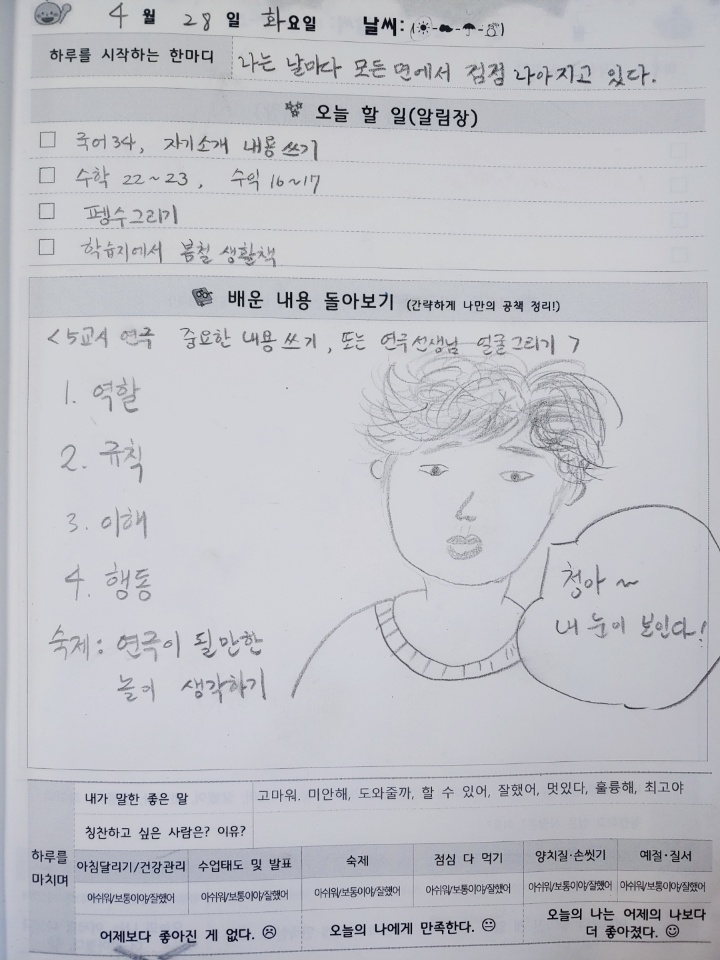 4 월 28 일 화요일 날씨:( - - - )
하루를 시작하는 한마디 나는 날마다 모든 면에서 점점 나아지고 있다.
오늘 할 일(알림장)
국어 34, 자기소개 내용 쓰기
수학 22~23, 수익 16~17
펭수그리기
학습지에서 봄철 생활책
배운 내용 돌아보기 (간략하게 나만의 공책 정리!)
<5교시 연극 중요한 내용 쓰기, 또는 연극선생님 얼굴그리기>
1. 역할
2. 규칙
3. 이해
4. 행동
숙제: 연극이 될만한
놀이 생각하기
청아~
내 눈이 보인다!
하루를 마치며
내가 말한 좋은 말 고마워. 미안해, 도와줄까, 할 수 있어, 잘했어, 멋있다, 훌륭해, 최고야
칭찬하고 싶은 사람은? 이유?
아침달리기/건강관리 수업태도 및 발표 숙제 점심 다 먹기 양치질·손씻기 예절·질서
아쉬워/보통이야/잘했어 아쉬워/보통이야/잘했어 아쉬워/보통이야/잘했어 아쉬워/보통이야/잘했어 아쉬워/보통이야/잘했어 아쉬워/보통이야/잘했어
어제보다 좋아진 게 없다. ☹ 오늘의 나에게 만족한다. 😐 오늘의 나는 어제의 나보다
더 좋아졌다. ☺